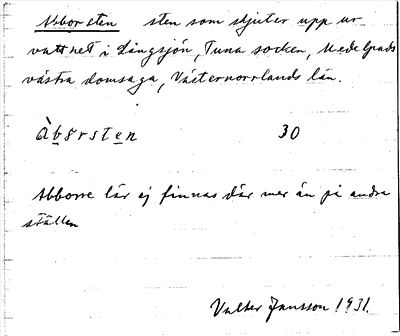 Abborsten sten som skjuter upp ur
vattnet i Långsjön, Tuna socken, Medelpads
västra domsaga, Västernorrlands län.
Àbərsten 30
Abborre lär ej finnas där mer än på andra
ställen
Valter Jansson 1931.